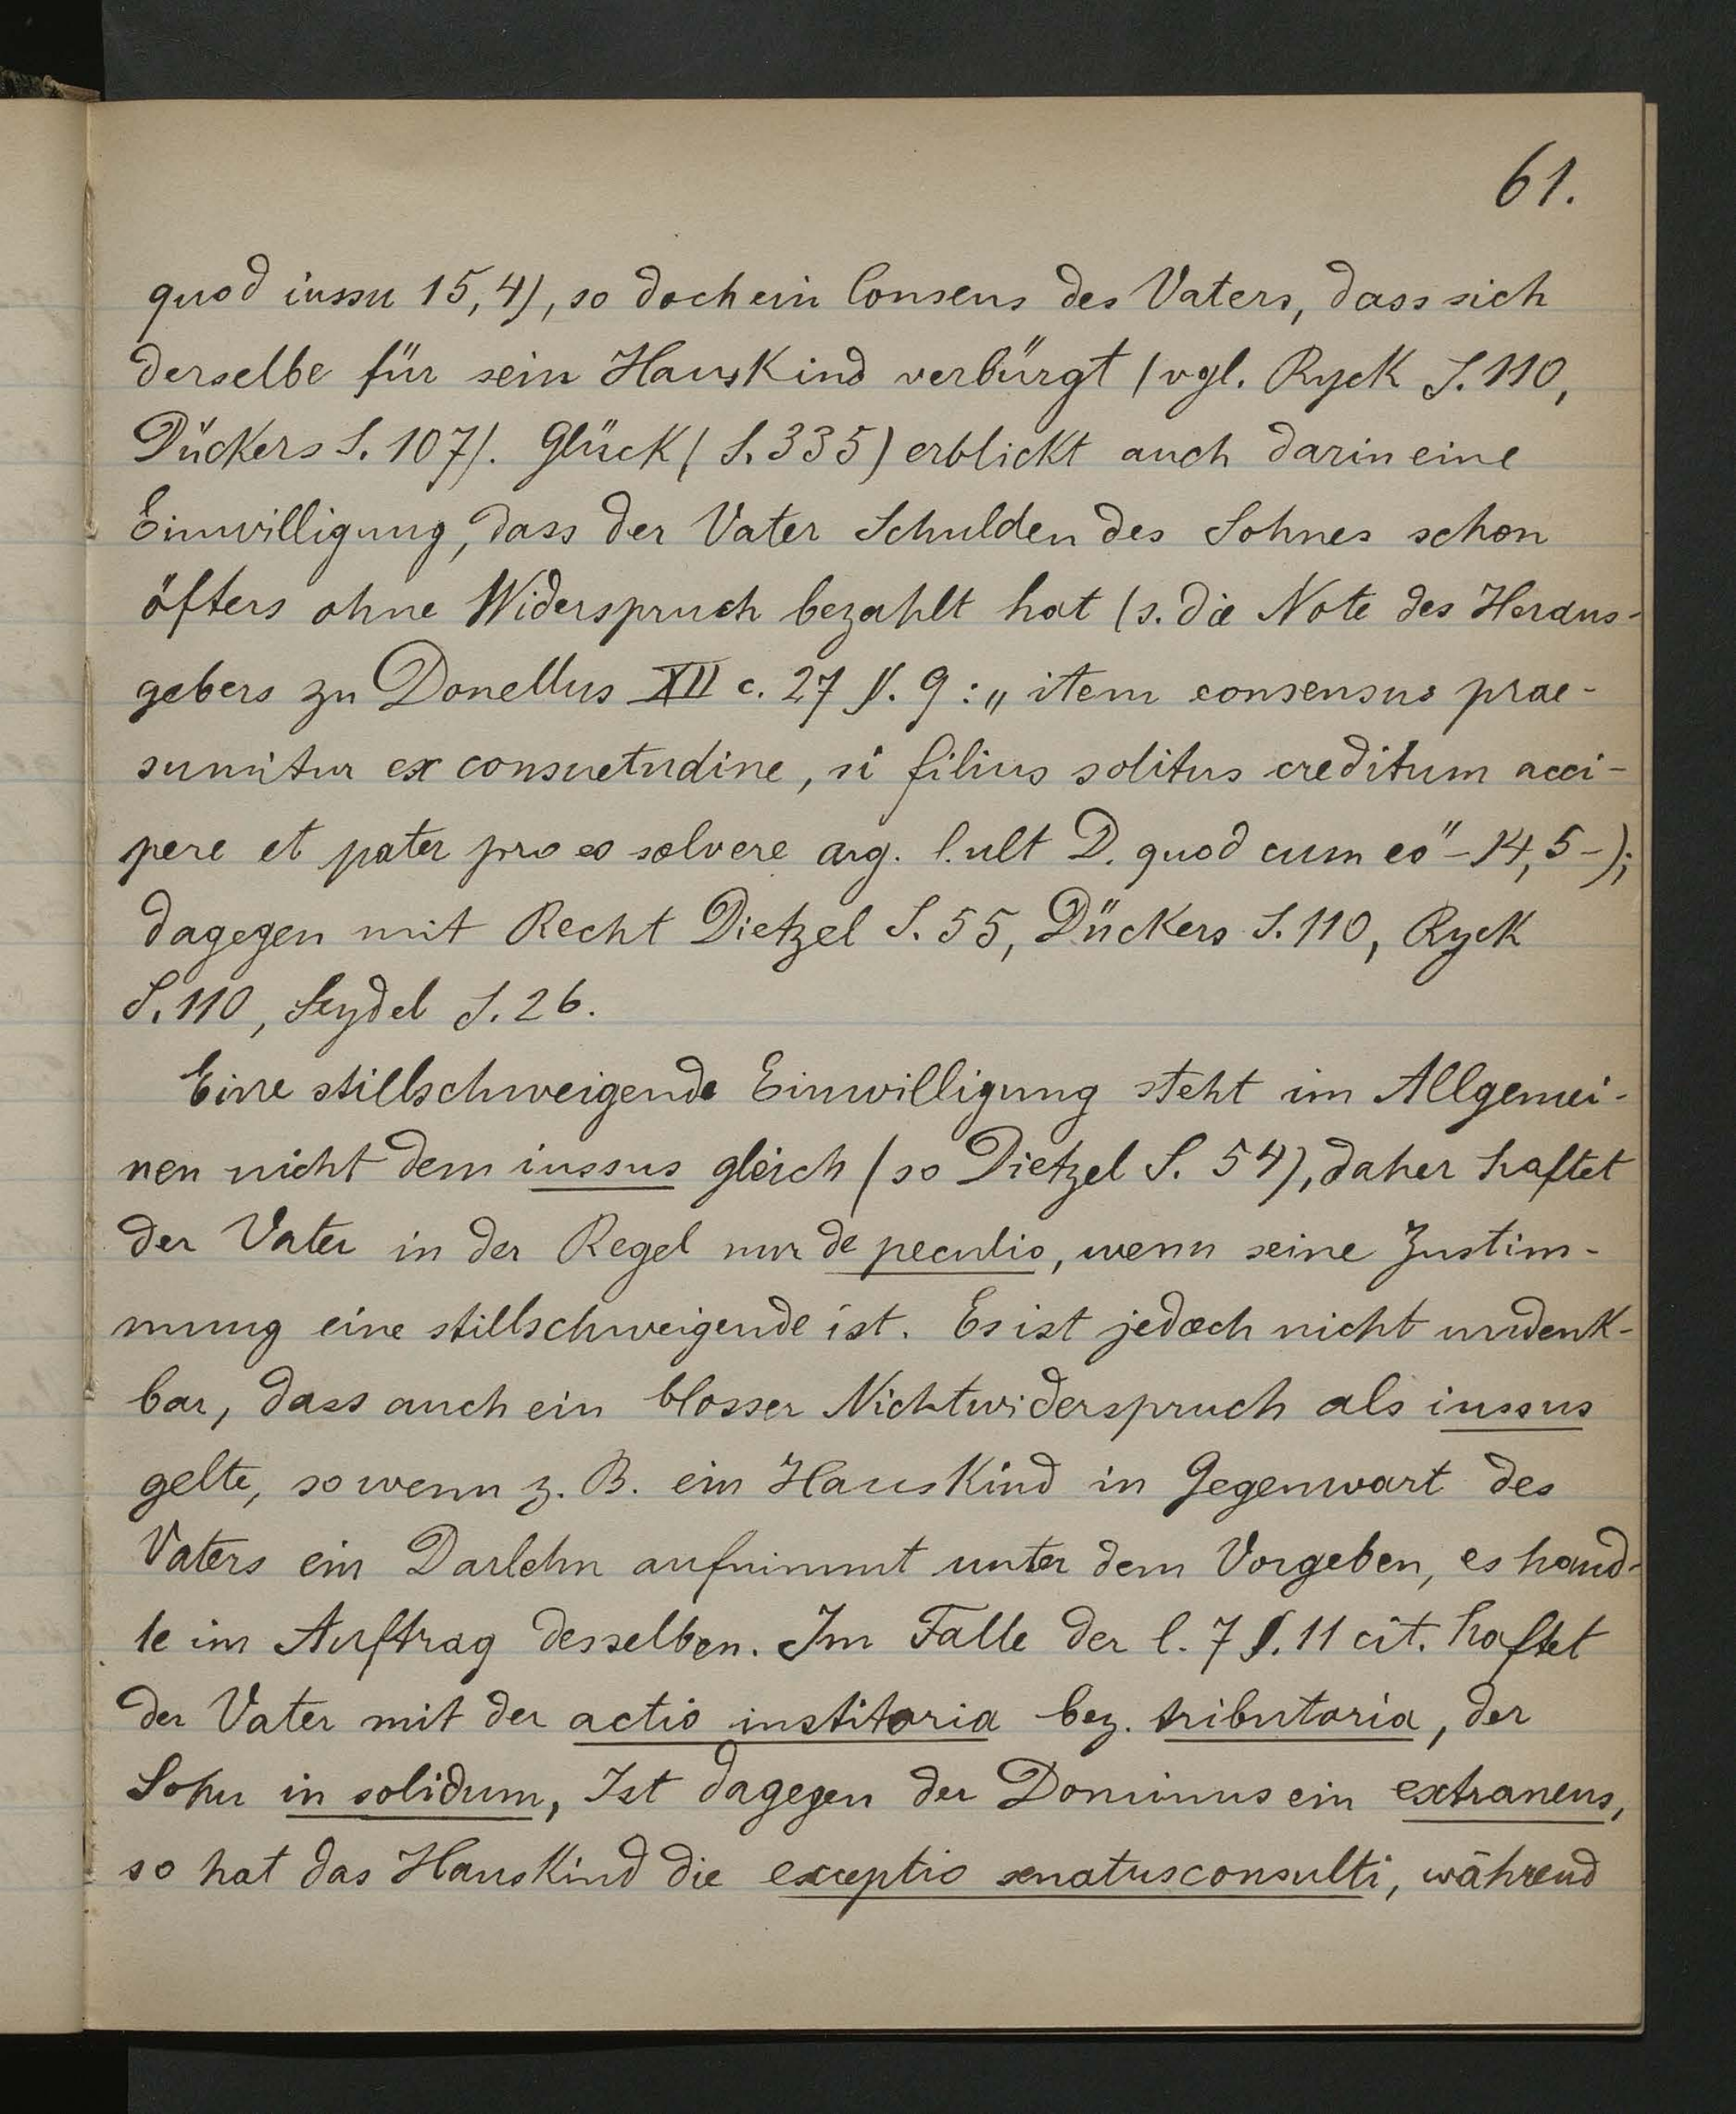 61.
quod iussu 15,4), so doch ein Consens des Vaters, dass sich
derselbe für sein Hauskind verbürgt (vgl. Ryck S. 110,
Dückers S. 107). Glück (S. 335) erblickt auch darin eine
Einwilligung, dass der Vater Schulden des Sohnes schon
öfters ohne Widerspruch bezahlt hat (s. die Note des Heraus-
gebers zu Donellus XII c. 27 §. 9 : „ item consensus prae-
sumitur ex consuetudine, si filius solitus creditum acci-
pere et pater pro eo solvere arg. l. ult D. quod cum eo" - 14, 5 -);
dagegen mit Recht Dietzel S. 55, Dückers S. 110, Ryck
S. 110, Seydel S. 26.
Eine stillschweigende Einwilligung steht im Allgemei-
nen nicht dem iussus gleich (so Dietzel S. 54), daher haftet
der Vater in der Regel nur de peculio, wenn seine Zustim-
mung eine stillschweigende ist. Es ist jedoch nicht undenk-
bar, dass auch ein blosser Nichtwiderspruch als iussus
gelte, so wenn z. B. ein Hauskind in Gegenwart des
Vaters ein Darlehn aufnimmt unter dem Vorgeben, es hand-
le im Auftrag desselben. Im Falle der l. 7 §. 11 cit. haftet
der Vater mit der actio institoria bez. tributoria, der
Sohn in solidum, Ist dagegen der Dominus ein extraneus,
so hat das Hauskind die exceptio senatusconsulti, während